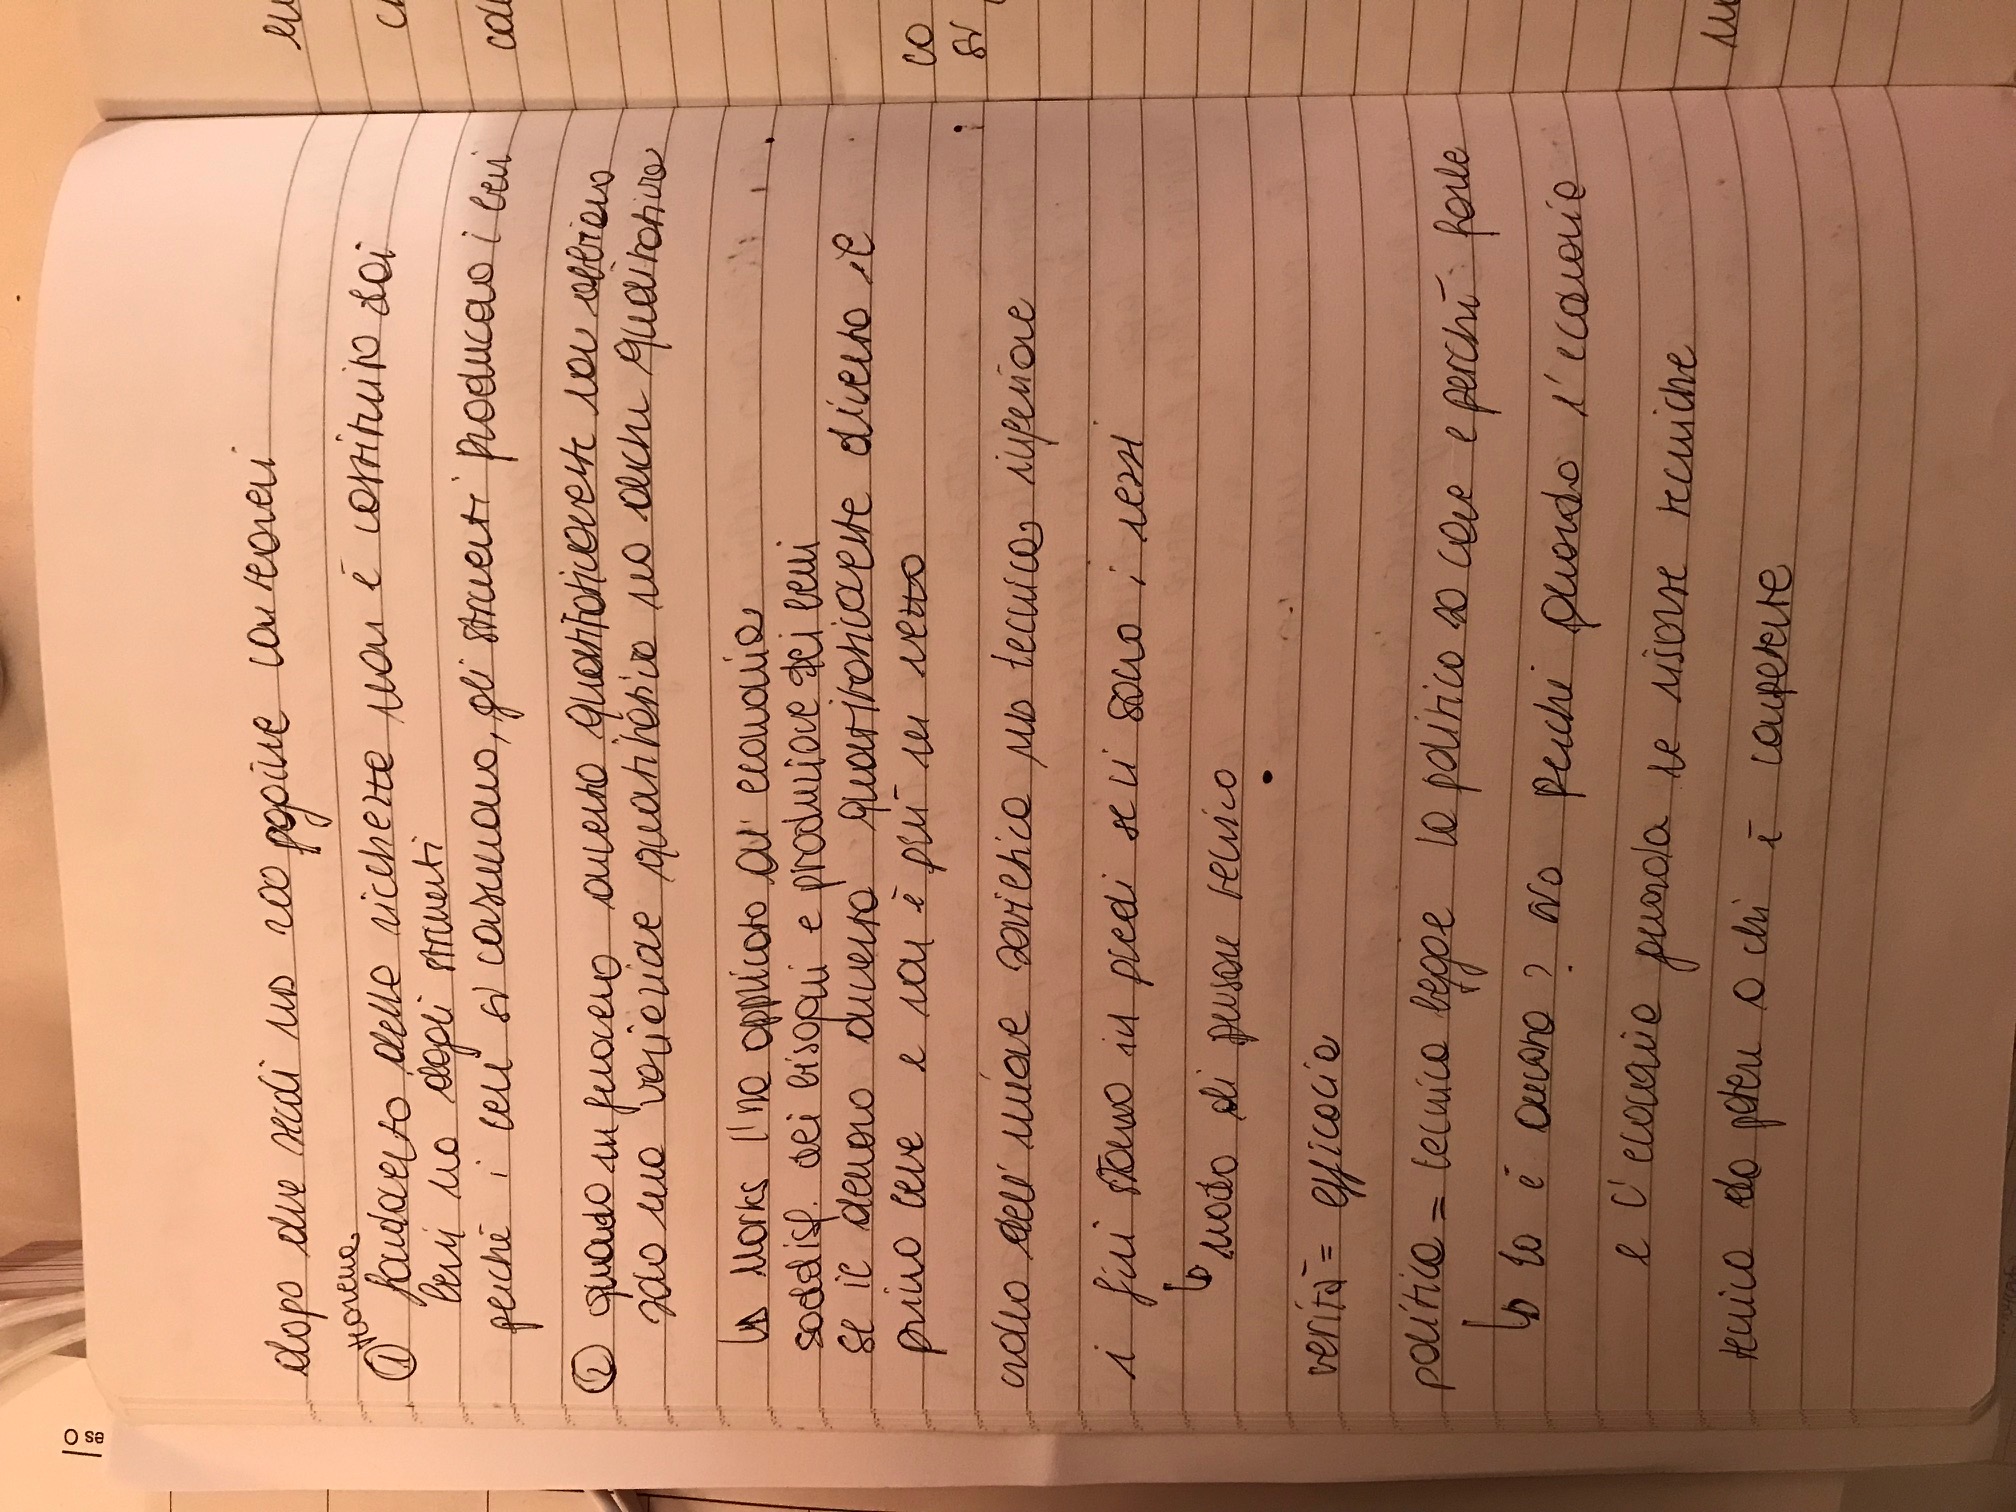 dopo due righi ma 200 pagine
① fondamento delle ricchezze non è costituito dai
beni ma dagli strumenti
perchè i beni si consumano, gli strumenti producono i beni
② quando un fenomeno aumenta quantitativamente non abbiamo
solo una variazione quantitativa ma anche qualitativa
↳ Marx l'ha applicato all'economia
soddisf. dei bisogni e produzione dei beni
se il denaro aumenta quantitativamente diventa il
primo bene e non è più un mezzo
crollo dell'unione sovietica ma tecnica inferiore
i fini stanno in piedi se ci sono i mezzi
↳ modo di pensare tecnico
verità = efficacia
politica = tecnica regge la politica sa come e perchè farle
↳ lo è ancora? no perchè guarda l'economia
e l'economia guarda le risorse tecniche
tecnica da potere a chi è competente
co
si